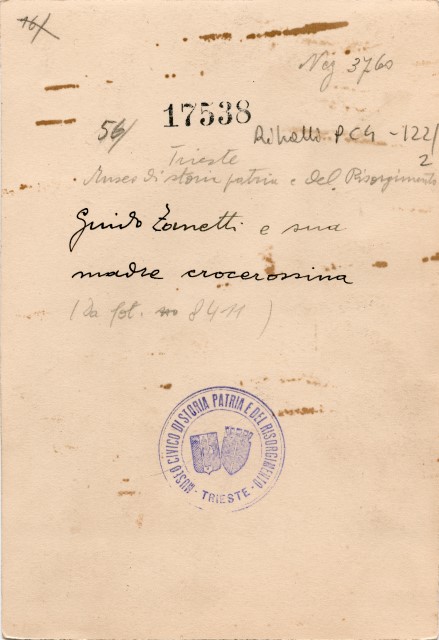 16/
Neg 3760
17538
56/
Ribalta PC4 - 122/
2
Trieste
Museo di storia patria e del Risorgimento
Guido Zanetti e sua
madre crocerossina
(Da fot. 8411)
MUSEO CIVICO DI STORIA PATRIA E DEL RISORGIMENTO
- TRIESTE -